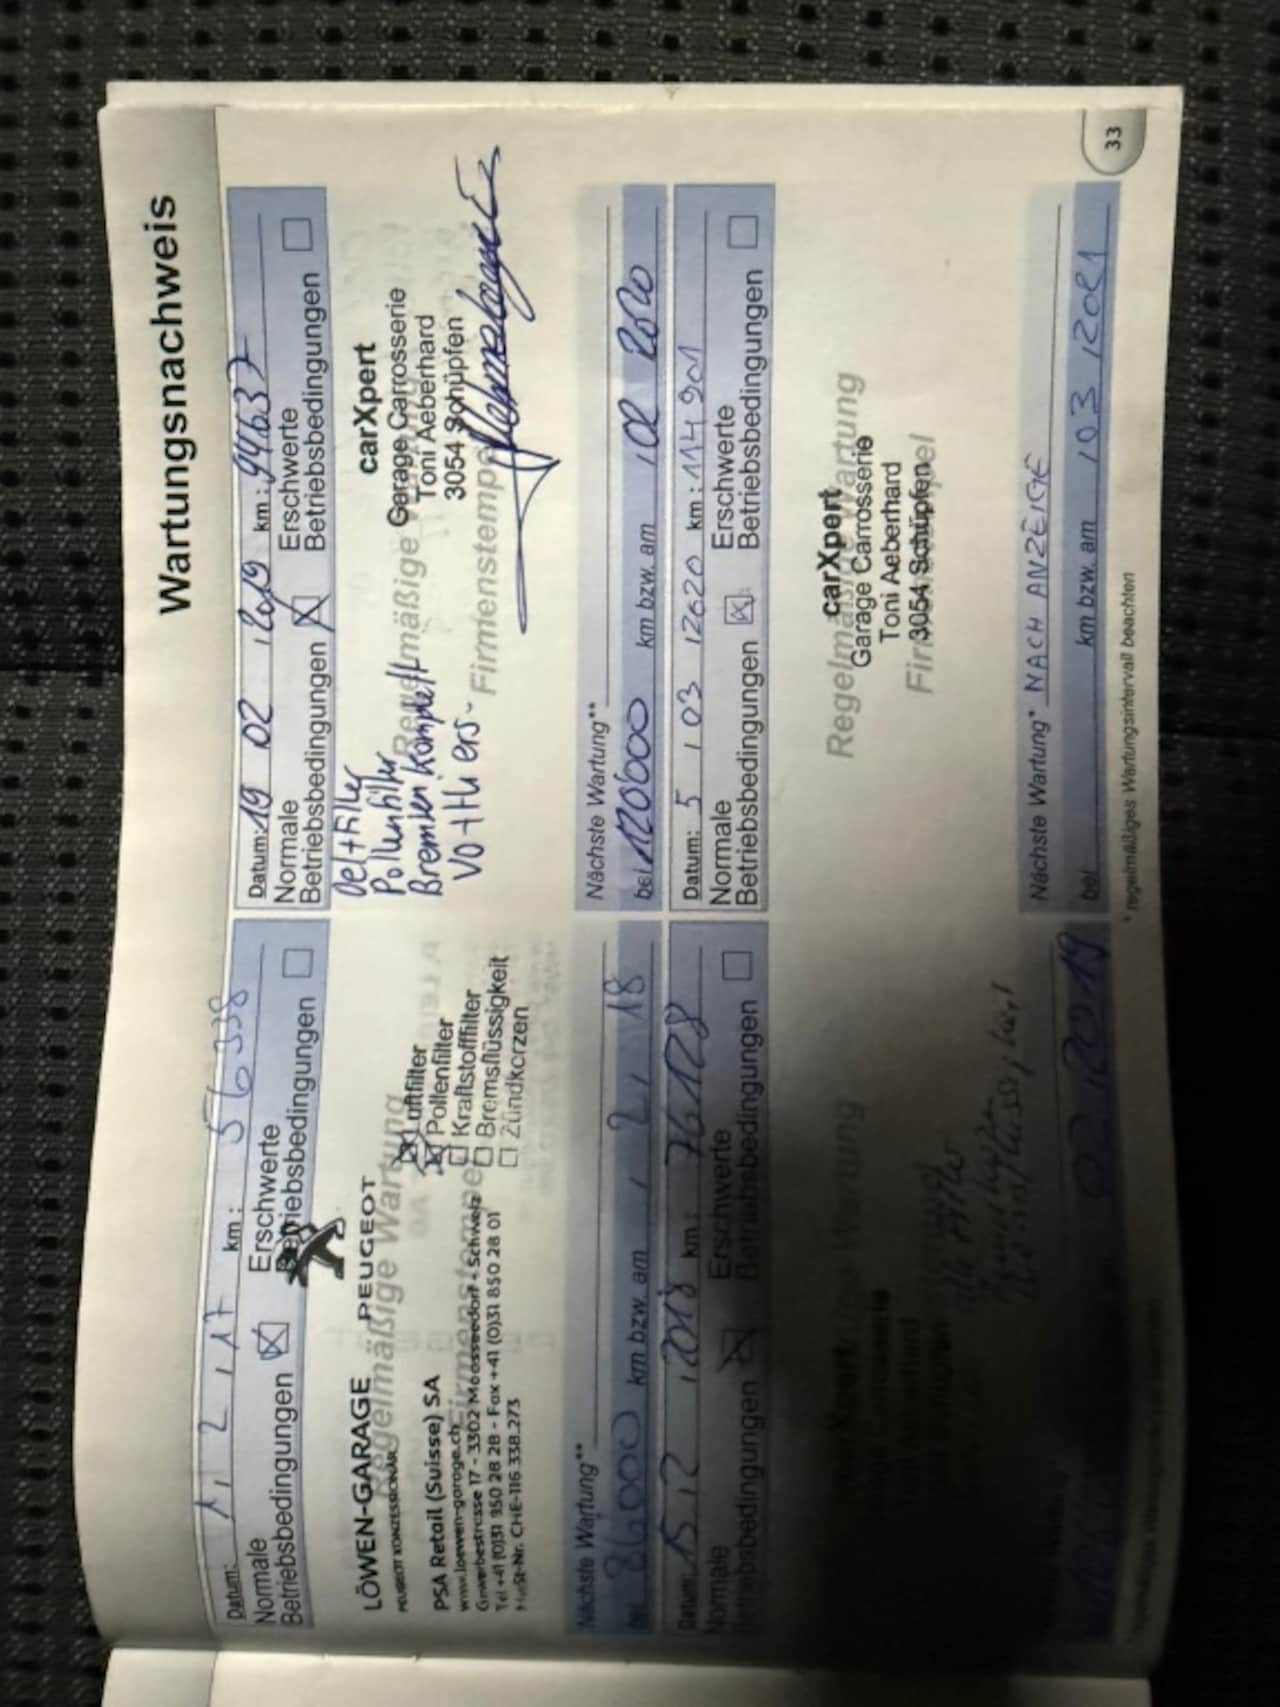 Wartungsnachweis
Datum: 1 , 2 , 17 km : 56338
Normale Erschwerte
Betriebsbedingungen Betriebsbedingungen
LÖWEN-GARAGE PEUGEOT
PEUGEOT KONZESSIONÄR
PSA Retail (Suisse) SA
www.loewen-garage.ch
Gewerbestrasse 17 - 3302 Moosseedorf - Schweiz
Tel +41 (0)31 850 28 28 - Fax +41 (0)31 850 28 01
MwSt-Nr. CHE-116 338.273
Luftfilter
Pollenfilter
Kraftstofffilter
Bremsflüssigkeit
Zündkerzen
Regelmäßige Wartung
Firmenstempel
Nächste Wartung**
bei 86000 km bzw. am , 2 , 18
Datum: 19 02 , 2019 km : 94637
Normale Erschwerte
Betriebsbedingungen Betriebsbedingungen
Oel+Filter
Pollenfilter
Bremsen komplett
VO + HI ers-
carXpert
Garage Carrosserie
Toni Aeberhard
3054 Schüpfen
Regelmäßige Wartung
Firmenstempel
Nächste Wartung**
bei 120'000 km bzw. am , 02 2020
Datum: 15 , 2 , 2018 km : 76128
Normale Erschwerte
Betriebsbedingungen Betriebsbedingungen
Wartung
02 , 2019
Datum: 5 , 03 , 2020 km : 114 901
Normale Erschwerte
Betriebsbedingungen Betriebsbedingungen
Regelmäßige Wartung
carXpert
Garage Carrosserie
Toni Aeberhard
3054 Schüpfen
Firmenstempel
Nächste Wartung* NACH ANZEIGE
bei km bzw. am , 03 , 2021
* regelmäßiges Wartungsintervall beachten
33